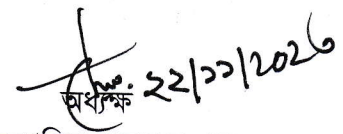 অধ্যক্ষ ২২/১১/২০২৩